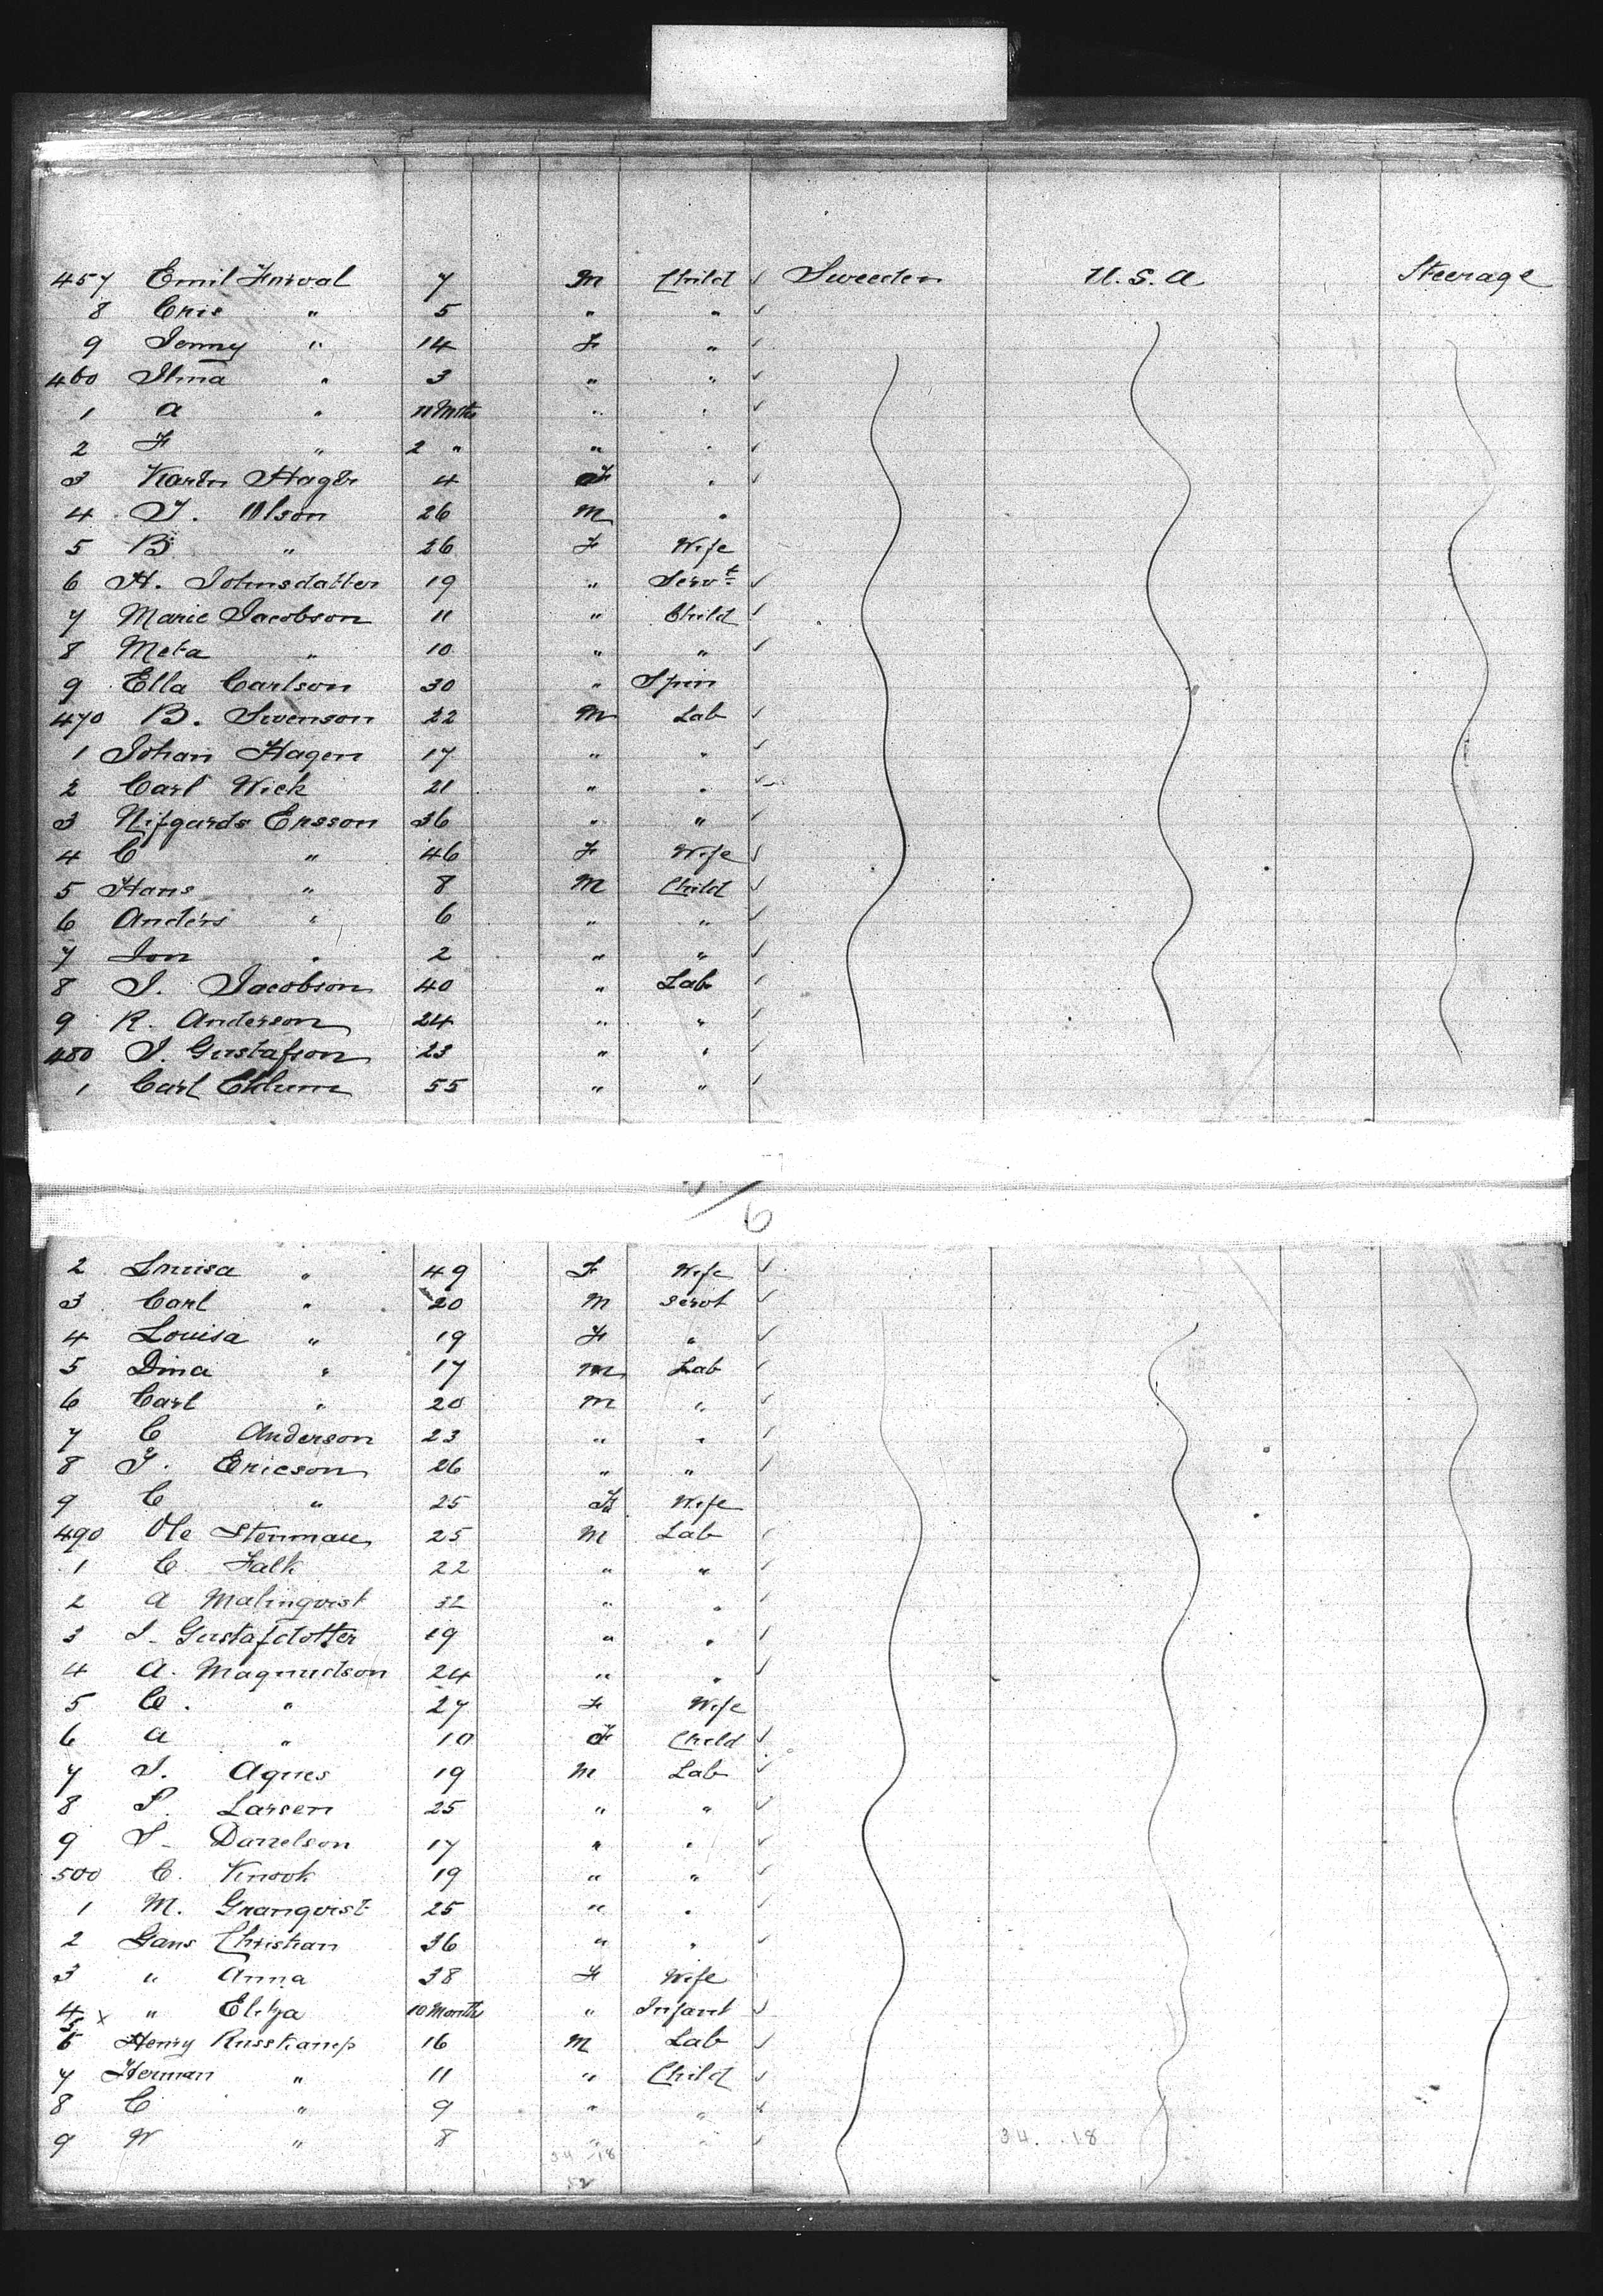 457 Emil Forval 7 M Child ✓ Sweden U.S.A Steerage
8 Cris " 5 " " ✓
9 Jenny " 14 F " ✓
460 Ilma " 3 " " ✓
1 A " 11 Mths " " ✓
2 F " 2 " " " ✓
3 Karin 4 F " ✓
4 J. Olson 26 M "
5 B " 26 F Wife
6 H. Johnsdatter 19 " Servt ✓
7 Marie Jacobson 11 " Child ✓
8 Meta " 10 " " ✓
9 Ella Carlson 30 " Spin
470 B. Swenson 22 M Lab ✓
1 Johan Hagen 17 " " ✓
2 Carl Wick 21 " " ✓
3 Nifgards Ersson 36 " " ✓
4 C " 46 F Wife ✓
5 Hans " 8 M Child ✓
6 Anders " 6 " " ✓
7 Jon " 2 " " ✓
8 J. Jacobson 40 " Lab ✓
9 R. Anderson 24 " " ✓
480 J. Gustafson 23 " " ✓
1 Carl 55 " " ✓
6
2 Louisa " 49 F Wife ✓
3 Carl " 20 M Servt ✓
4 Louisa " 19 F " ✓
5 Dina " 17 M Lab ✓
6 Carl " 20 M " ✓
7 C Anderson 23 " " ✓
8 J. Ericson 26 " " ✓
9 C " 25 F Wife
490 Ole Stenman 25 M Lab ✓
1 C. Falk 22 " " ✓
2 A Malinqvist 32 " " ✓
3 J. Gustafdotter 19 " " ✓
4 A. Magnudson 24 " " ✓
5 C. " 27 F Wife
6 A " 10 F Child ✓
7 J. Agnes 19 M Lab ✓
8 P. Larsen 25 " " ✓
9 J. Danelson 17 " " ✓
500 C. Knook 19 " " ✓
1 M. Granqvist 25 " " ✓
2 Gans Christian 36 " " ✓
3 " Anna 38 F Wife
4 x " Eliza 10 Months " Infant ✓
5
6 Henry Russkamp 16 M Lab ✓
7 Herman " 11 " Child ✓
8 C " 9 " " ✓
9 W " 8 " " ✓ 34 18
34 18
52